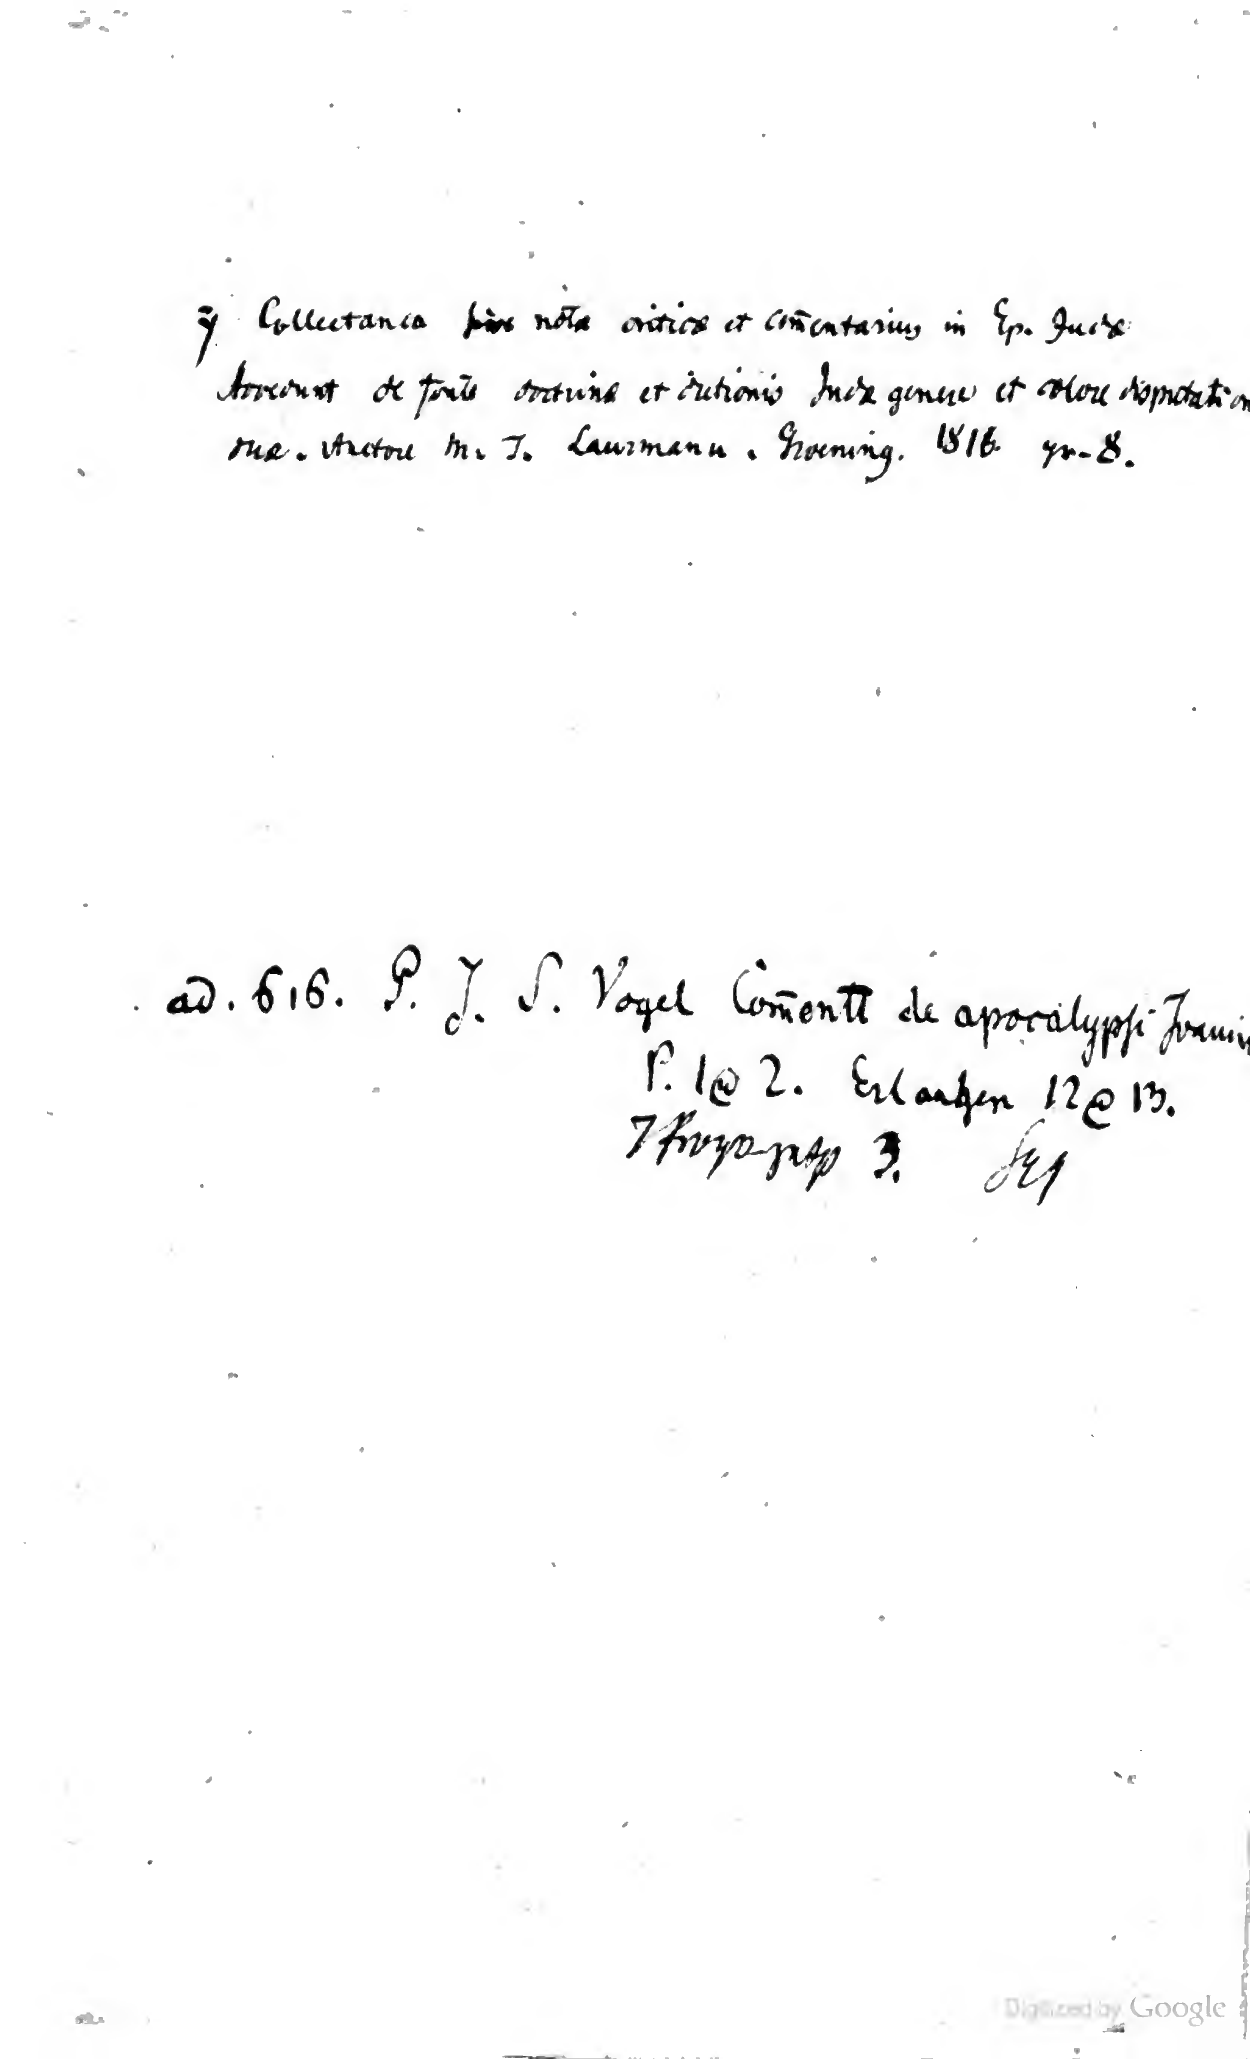 Collectanea sive notæ criticæ et com̄entarius in Ep. Judæ
Accedunt de fonte doctrinæ et dictionis Judæ genere et colore disputation
duæ. Auctore M. T. Laurmann. Groening. 1816. gr. 8.
ad. 616. P. J. S. Vogel Com̄entt de apocalypsi Joannis
P. 1 2. Erlangen 12 13.
3.
Digitized by Google